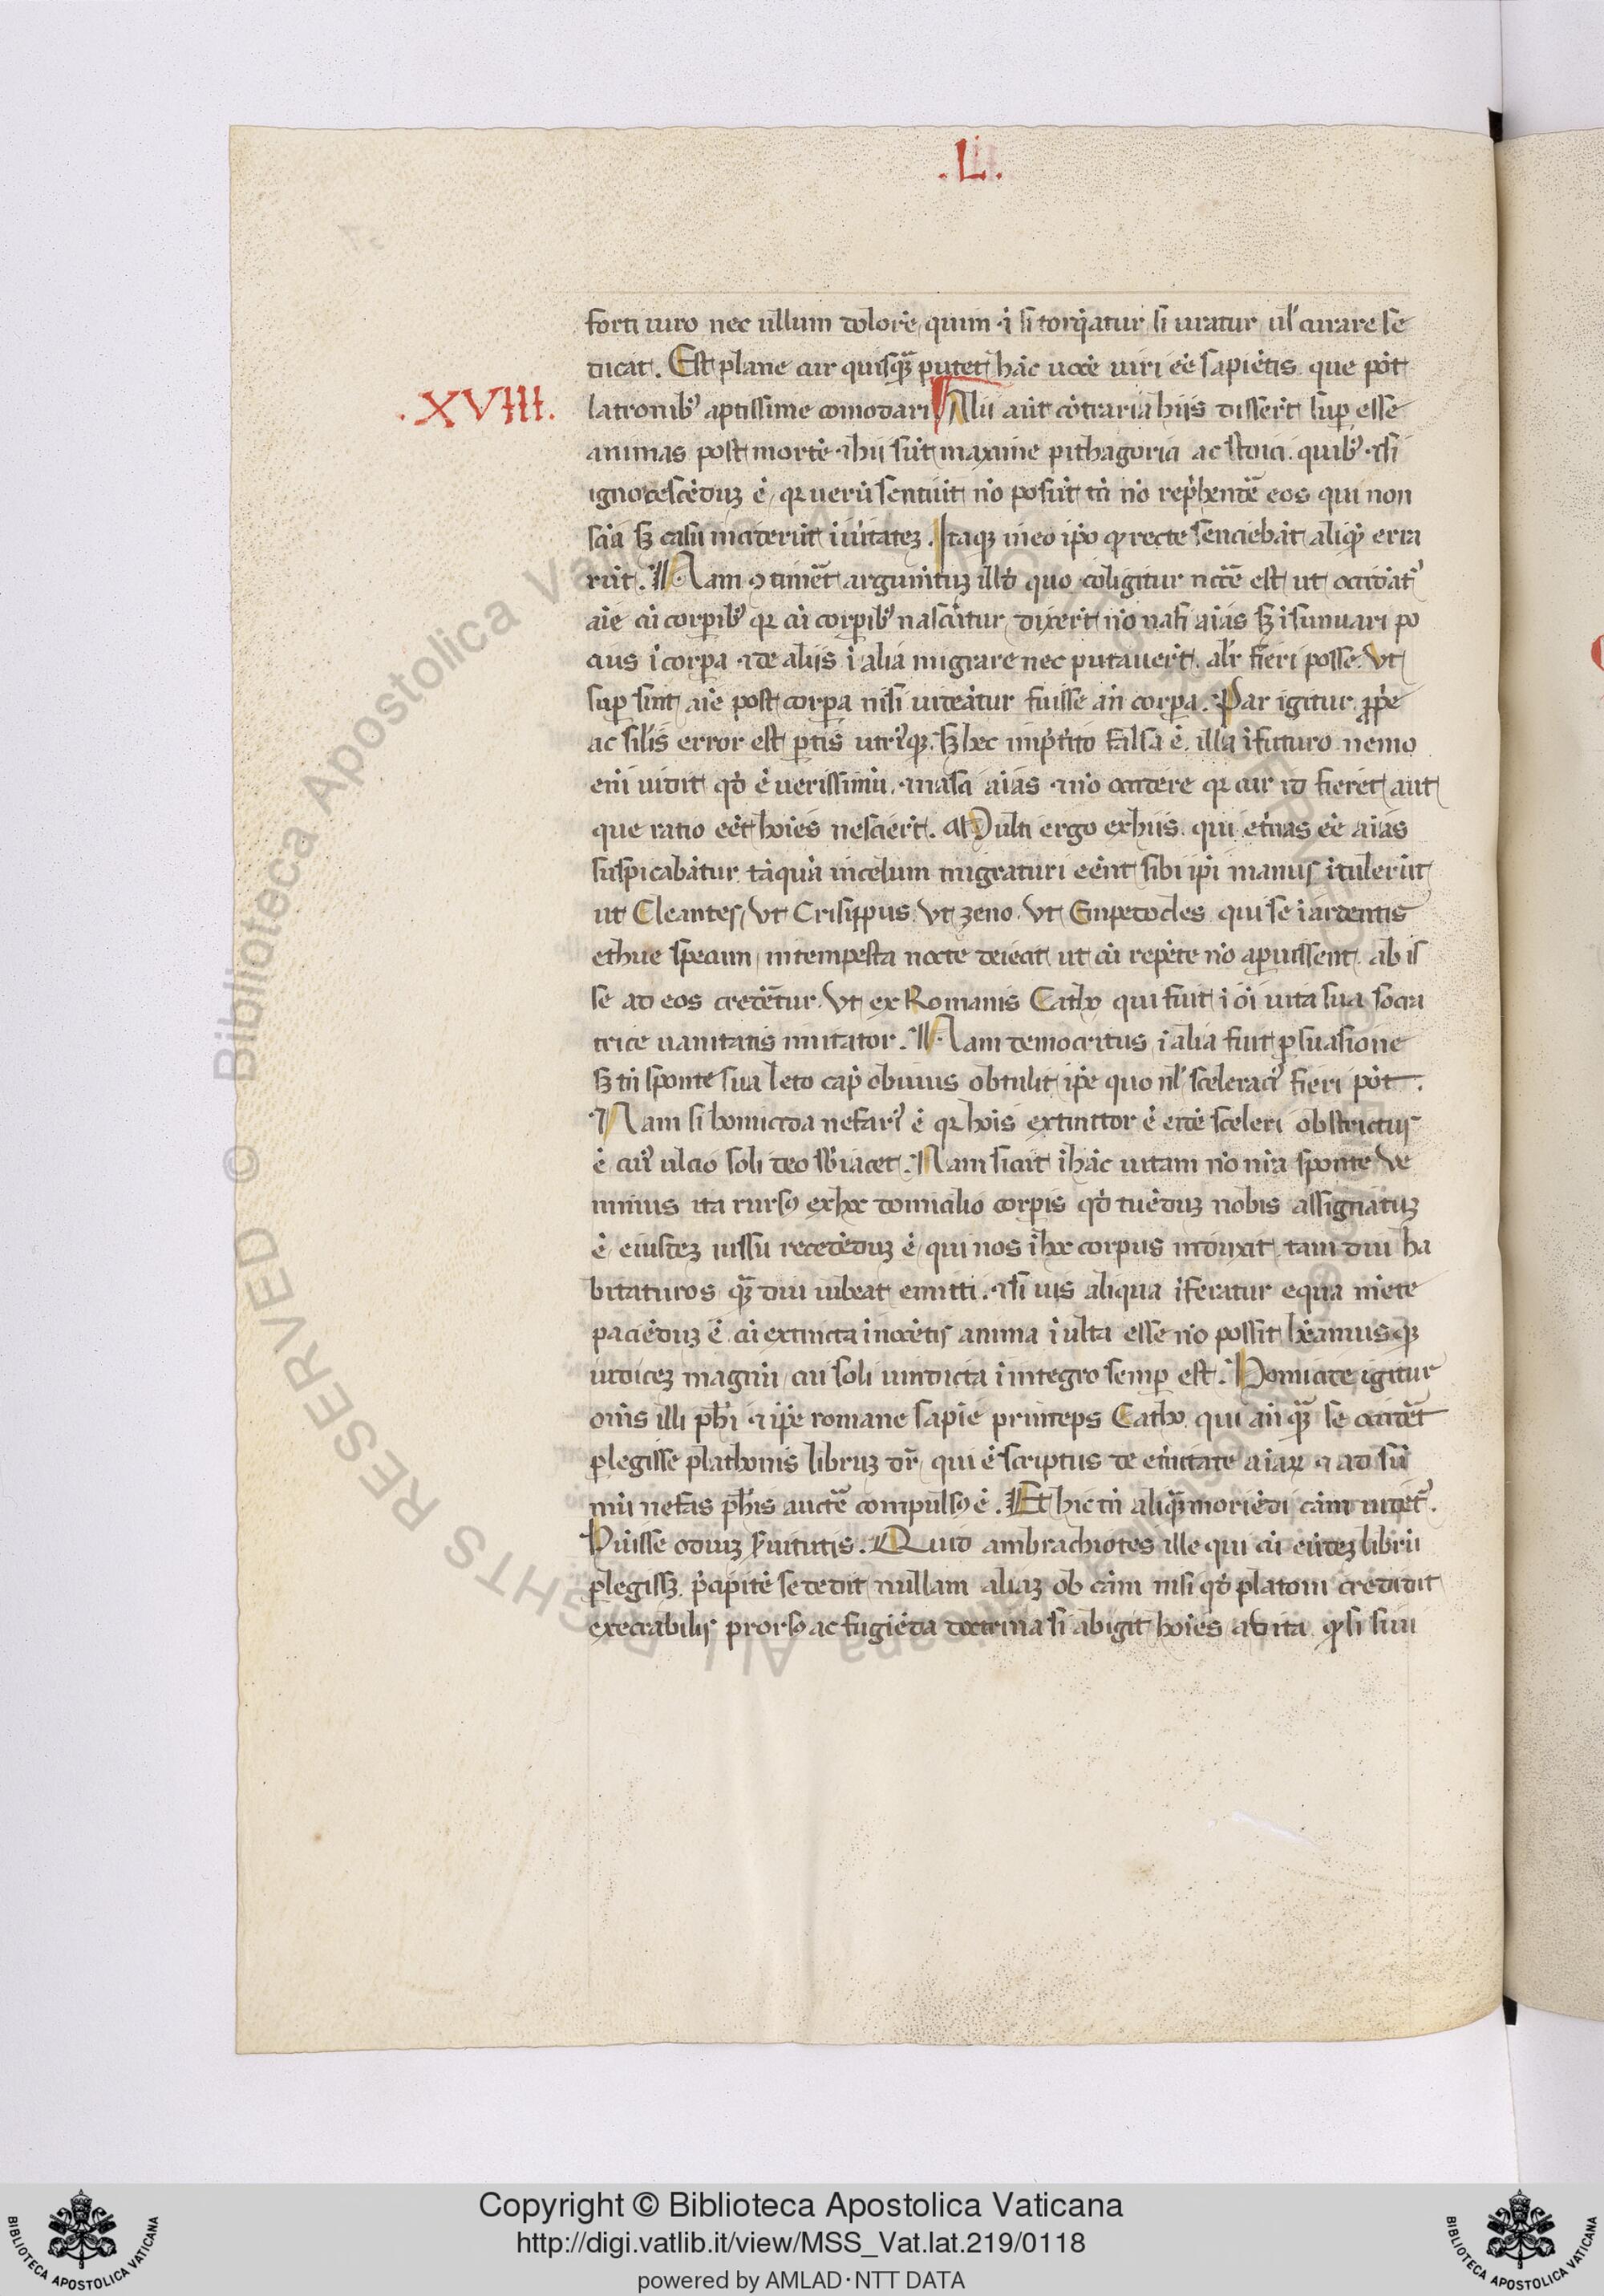 .L.
forti uiro nec ullum dolorē quim ⁊ si torq̄atur si uratur ul' curare se
dicat. Est plane cur quisqȝ putet hāc uocē uiri eē sapiētis que pōt
.XVIII.
latronibꝰ aptissime comodari Alii aūt cōtraria hiis disserūt sup esse
animas post mortē ⁊ hii sūt maxime pithagorici ac stoici. quibꝰ ⁊ si
ignoscēduȝ ē, qꝛ uerū sentiūt nō possūt tn̄ nō rep̄hendē eos qui non
sc̄ia sȝ casu inciderūt ī ūitateȝ. Itaqȝ in eo ip̄o qd' recte senciebāt aliqd' erra
rūt. Nam ꝯ timēt argumētuȝ illd' quo coligitur nc̄cē est ut occidāt
aīe cū corpibꝰ qꝛ cū corpibꝰ nascūtur dixerūt nō nasi aīas sȝ īsinuari po
cius ī corpa ⁊ de aliis ī alia migrare nec putauerūt alr̄ fieri posse. Vt
sup sint aīe post corpa nisi uideātur fuisse an̄ corpa. Par igitur ꝓpe
ac sil'is error est ptis utriꝰqȝ. Sȝ hec īp̄terito falsa ē. illa ī futuro nemo
enī uidit qd' ē uerissimū. ⁊ nasci aīas ⁊ nō occidere qꝛ cur id fieret aut
que ratio eēt hoīes nescierūt. Multi ergo ex hiis qui etn̄as eē aīas
suspicabātur tāquā in celum migraturi eēnt sibi ip̄i manus ītulerūt
ut Cleantes, Vt Crisippus Vt zeno Vt Empedocles qui se ī ardentis
ethne specum intempesta nocte deiecit ut cū repēte nō aparuissent ab iis
se ad eos credētur. Vt ex Romanis Catho qui fuit ī oī uita sua socra
trice uanitatis imitator. Nam democritus ī alia fuit psuasione
sȝ tn̄ sponte sua leto cap̄ obuius obtulit ip̄e quo nl' sceleraciꝰ fieri pōt.
Nam si homicida nefariꝰ ē qꝛ hoīs extinctor ē eidē sceleri obstrictus
ē cuiꝰ ulcio soli deo sb̄iacet. Nam sicut ī hāc uitam nō nr̄a sponte ve
nimus ita rursꝰ ex hoc domicilio corpis qd' tuēduȝ nobis assignatuȝ
ē eiusdeȝ iussu recedēduȝ ē, qui nos ī hoc corpus induxit tam diu ha
bitaturos qȝ diu iubeat emitti. ⁊ si uis aliqua īferatur equa mēte
paciēduȝ ē cū extincta īnocētis anima ī ulta esse nō possit hēamusqȝ
iudiceȝ magnū cui soli uindicta ī integro semp est. Homicide igitur
omīs illi phī ⁊ ip̄e romane sapiē princeps Catho qui an̄ qȝ se occidēt
plegisse plathonis libruȝ dr̄, qui ē scriptus de et'nitate aīaꝝ ⁊ ad sū
mū nefas phīs auctē compulsꝰ ē. Et hic tn̄ aliqȝ moriēdi cām uidetꝰ.
Hūisse odiuȝ s̄uitutis. Quid ambrachiotes ille qui cū eūdeȝ librū
plegissȝ p̄cipitē se dedit nullam aliaȝ ob cām nisi qd' platoni credidit
execrabilis prorsꝰ ac fugiēda doctrina si abigit hoīes a uita qd' si sciu
Copyright © Biblioteca Apostolica Vaticana
http://digi.vatlib.it/view/MSS_Vat.lat.219/0118
powered by AMLAD·NTT DATA